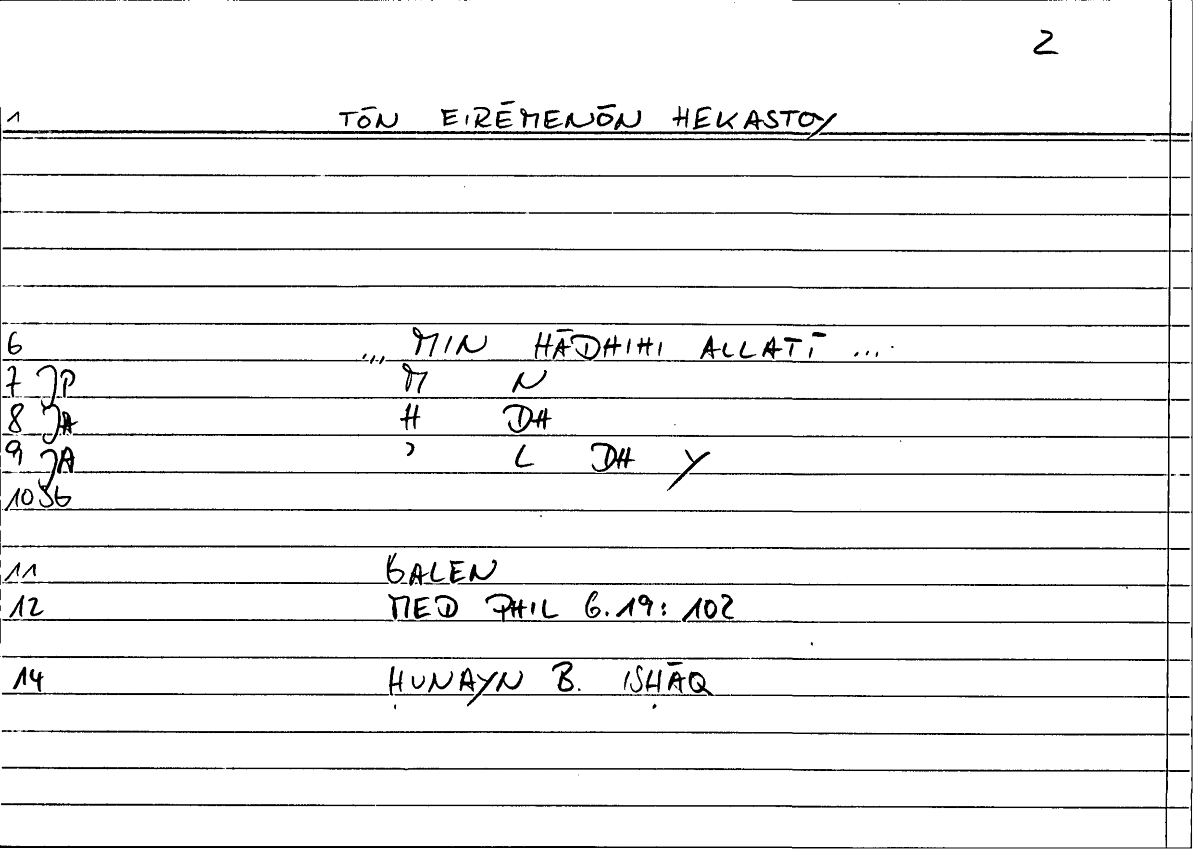 2
1 TŌN EIRĒMENŌN HEKASTOY
6 ... MIN HĀDHIHI ALLATĪ ...
7 JP M N
8 JA H DH
9 JA ʾ L DH Y
10 SG
11 GALEN
12 MED PHIL 6.19: 102
14 ḤUNAYN B. ISḤĀQ